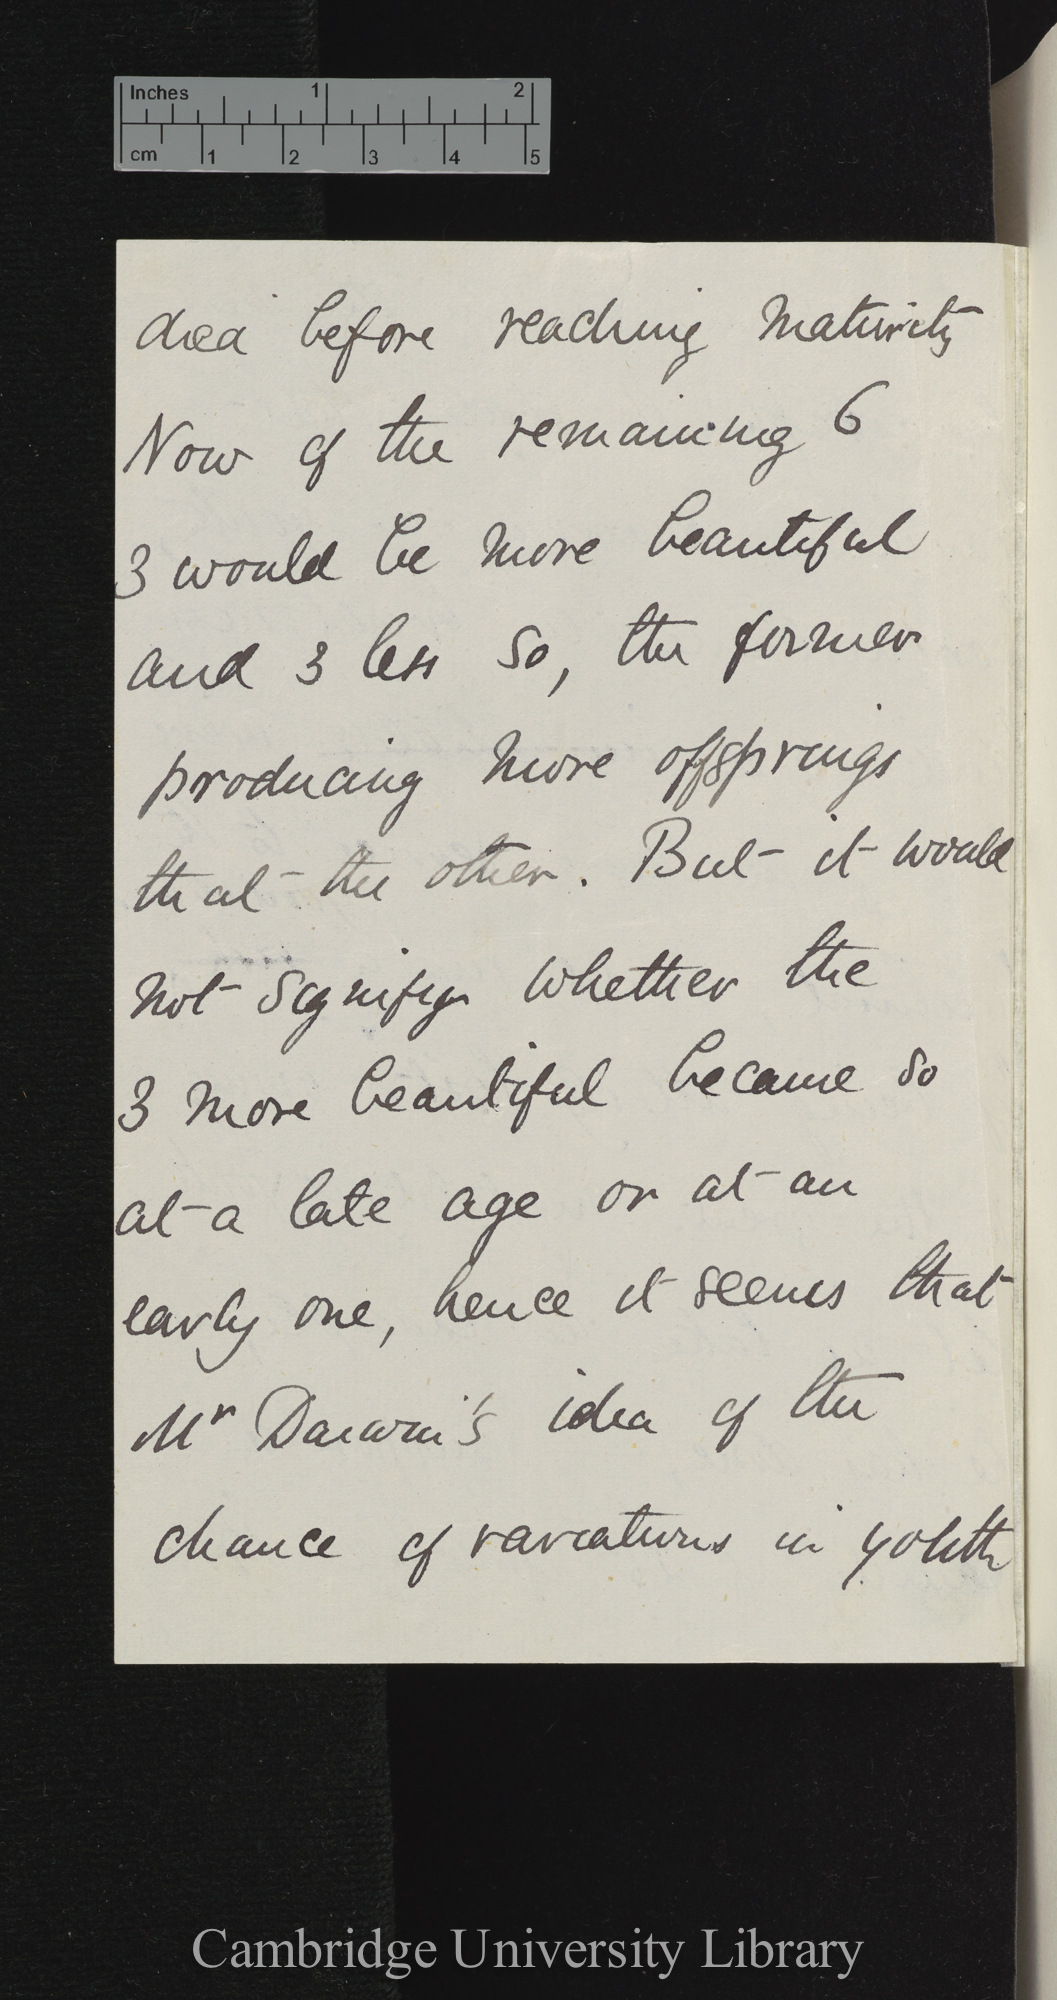 Inches 1 2
cm 1 2 3 4 5
died before reaching maturity
Now of the remaining 6
3 would be more beautiful
and 3 less so, the former
producing more offsprings
that the other. But it would
not signify whether the
3 more beautiful became so
at a late age or at an
early one, hence it seems that
Mr Darwin's idea of the
chance of variations in youth
Cambridge University Library